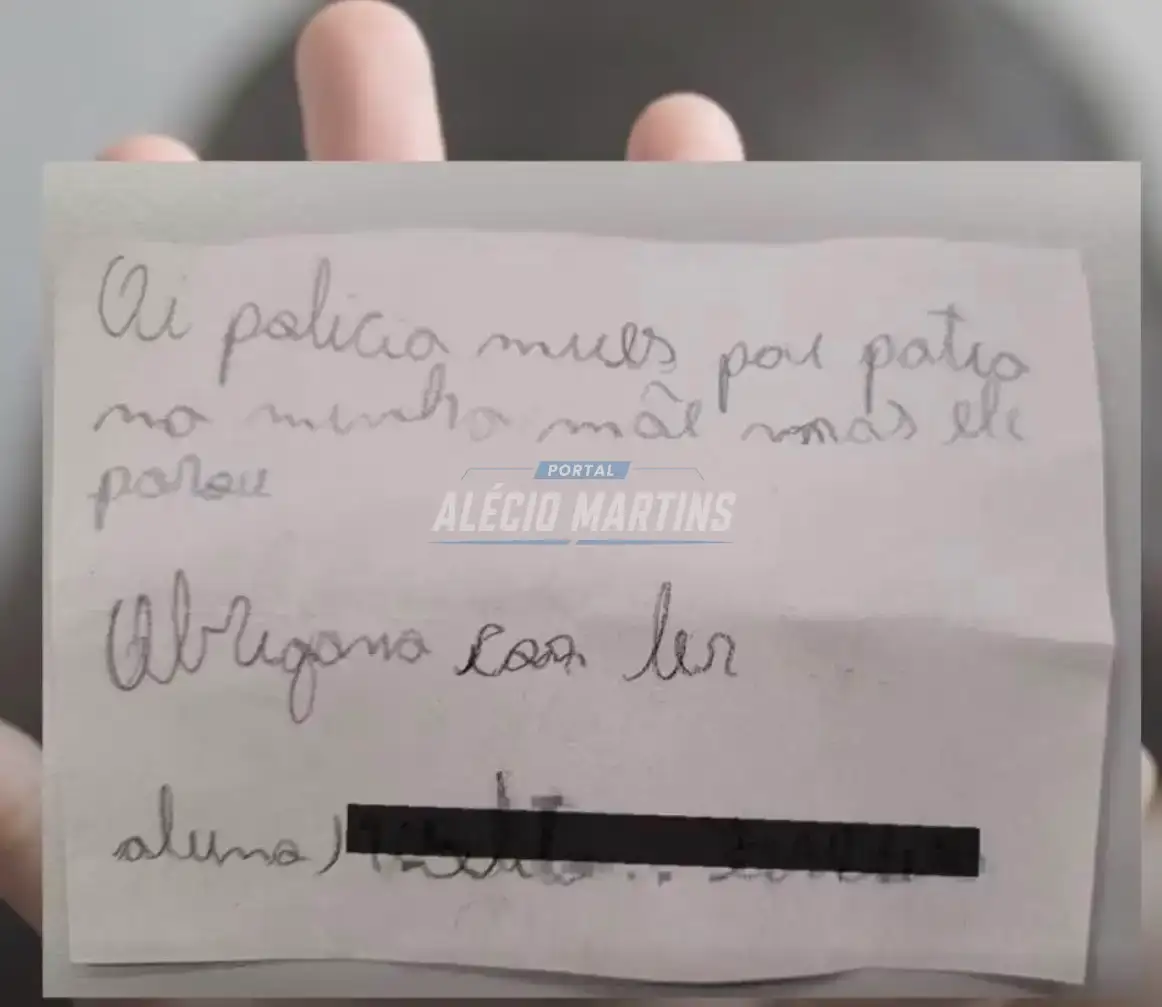 Oi policia meus pai patia
na minha mãe mas ele
parou
PORTAL
ALÉCIO MARTINS
Obrigana con ler
aluna